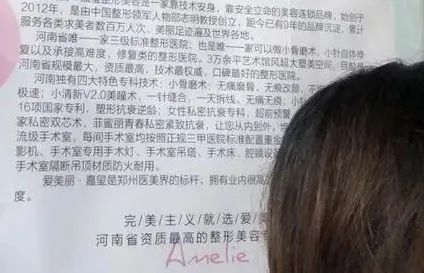 整形美容是一家靠技术安身、靠安全立命的美容连锁品牌，始创于
2012年，是由中国整形领军人物邵志明教授创立，距今已有9年的品牌沉淀，累计
服务各类求美者数百万人次，美丽足迹遍及世界各地。
河南省唯一一家三级标准整形医院，也是唯一一家可以做小骨磨术，小针自体修
复以及承接高难度，修复类的整形医院。3万余平艺术馆风超大塑美空间，目前是
河南省规模最大，资质最高，技术最权威，口碑最好的整形医院。
河南独有四大特色专科技术：小骨磨术：无痛磨骨，无痕改颜，
极速；小清新V2.0美瞳术，一针缝合，一天拆线，无痛无痕；小
16项国家专利，整形抗衰逆龄；女性私密抗衰专科，超前预警
家私密双芯术，菲蜜丽青春私密紧致抗衰，让您从内到外，
流级手术室，每间手术室均按照正规三甲医院标准配置重金
影机、手术室专用手术灯、手术室吊塔、手术床、腔镜设
手术室隔断吊顶材质防火耐用。
爱美丽·嘉玺是郑州医美界的标杆，拥有业内很高
度。
完/美/主/义/就/选/爱
河南省资质最高的整形美容
Amelie